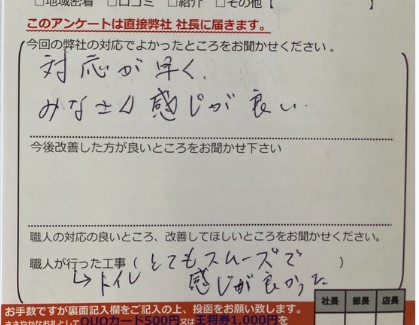 □地域密着 □口コミ □紹介 □その他【 】
このアンケートは直接弊社 社長に届きます。
今回の弊社の対応でよかったところをお聞かせください。
対応が早く、
みなさん感じが良い。
今後改善した方が良いところをお聞かせ下さい
職人の対応の良いところ、改善してほしいところをお聞かせください。
職人が行った工事（とてもスムーズで）
↳トイレ 感じが良かった
社長 部長 店長
お手数ですが裏面記入欄をご記入の上、投函をお願い致します。
ささやかなお礼としてQUOカード500円又は王将券1,000円を